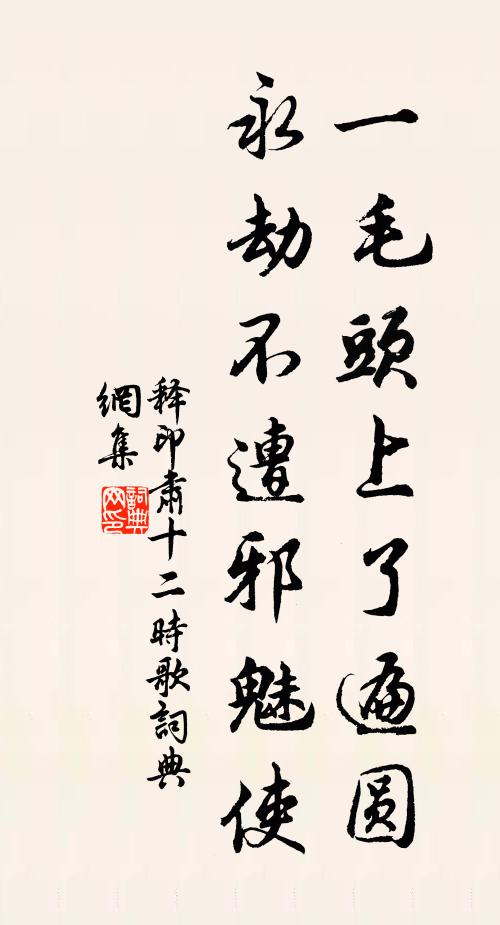 一毛頭上了遍圆
永劫不遭邪魅使
释印肅十二時歌詞典
網集
詞典
网印